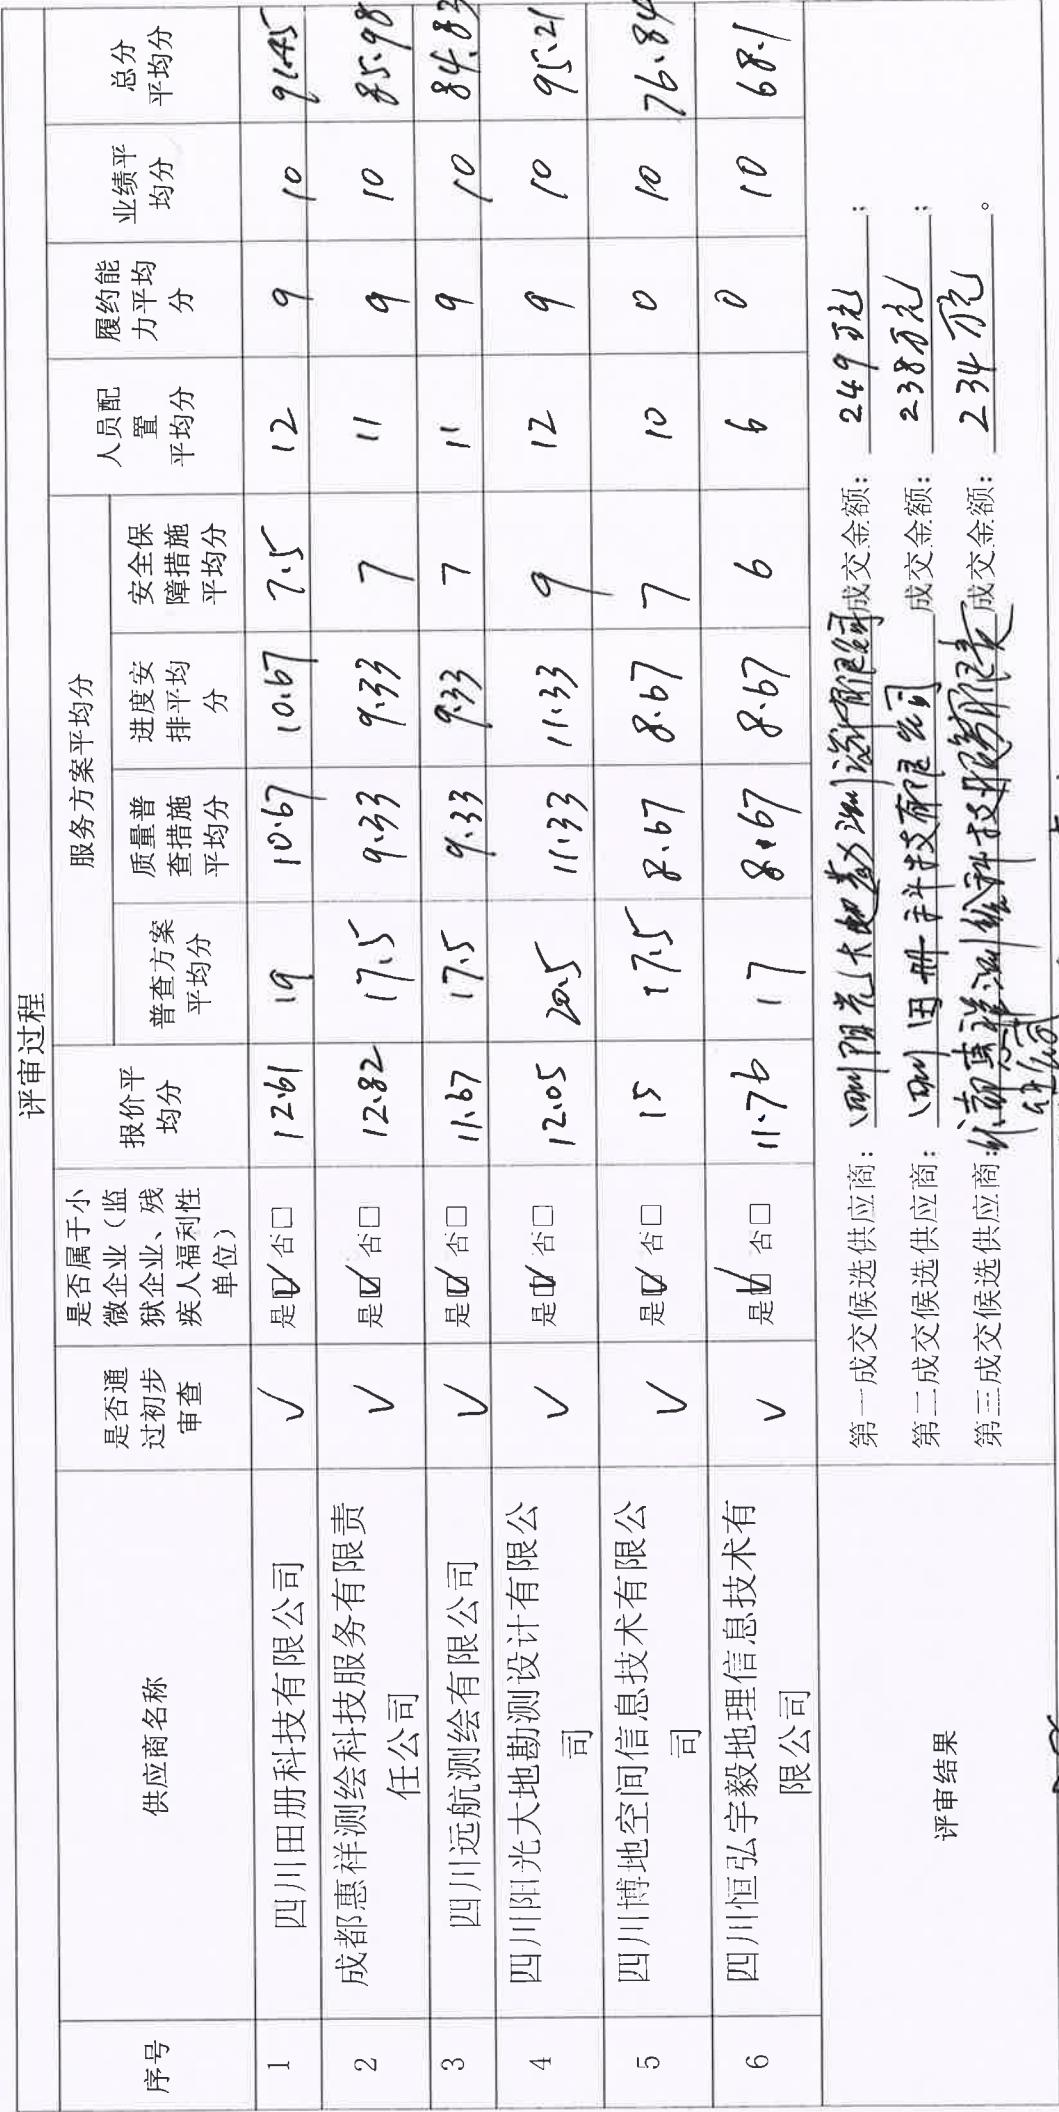 评审过程
序号 供应商名称 是否通过初步审查 是否属于小微企业（监狱企业、残疾人福利性单位） 报价平均分 服务方案平均分 人员配置平均分 履约能力平均分 业绩平均分 总分平均分
普查方案平均分 质量普查措施平均分 进度安排平均分 安全保障措施平均分
1 四川田册科技有限公司 √ 是☑ 否□ 12.61 19 10.67 10.67 7.5 12 9 10 91.45
2 成都惠祥测绘科技服务有限责任公司 √ 是☑ 否□ 12.82 17.5 9.33 9.33 7 11 9 10 85.98
3 四川远航测绘有限公司 √ 是☑ 否□ 11.67 17.5 9.33 9.33 7 11 9 10 84.83
4 四川阳光大地勘测设计有限公司 √ 是☑ 否□ 12.05 20.5 11.33 11.33 9 12 9 10 95.21
5 四川博地空间信息技术有限公司 √ 是☑ 否□ 15 17.5 8.67 8.67 7 10 0 10 76.84
6 四川恒弘宇毅地理信息技术有限公司 √ 是☑ 否□ 11.76 17 8.67 8.67 6 6 0 10 68.1
评审结果
第一成交候选供应商：四川阳光大地勘测设计有限公司 成交金额：249万元；
第二成交候选供应商：四川田册科技有限公司 成交金额：238万元；
第三成交候选供应商：成都惠祥测绘科技服务有限责任公司 成交金额：234万元。